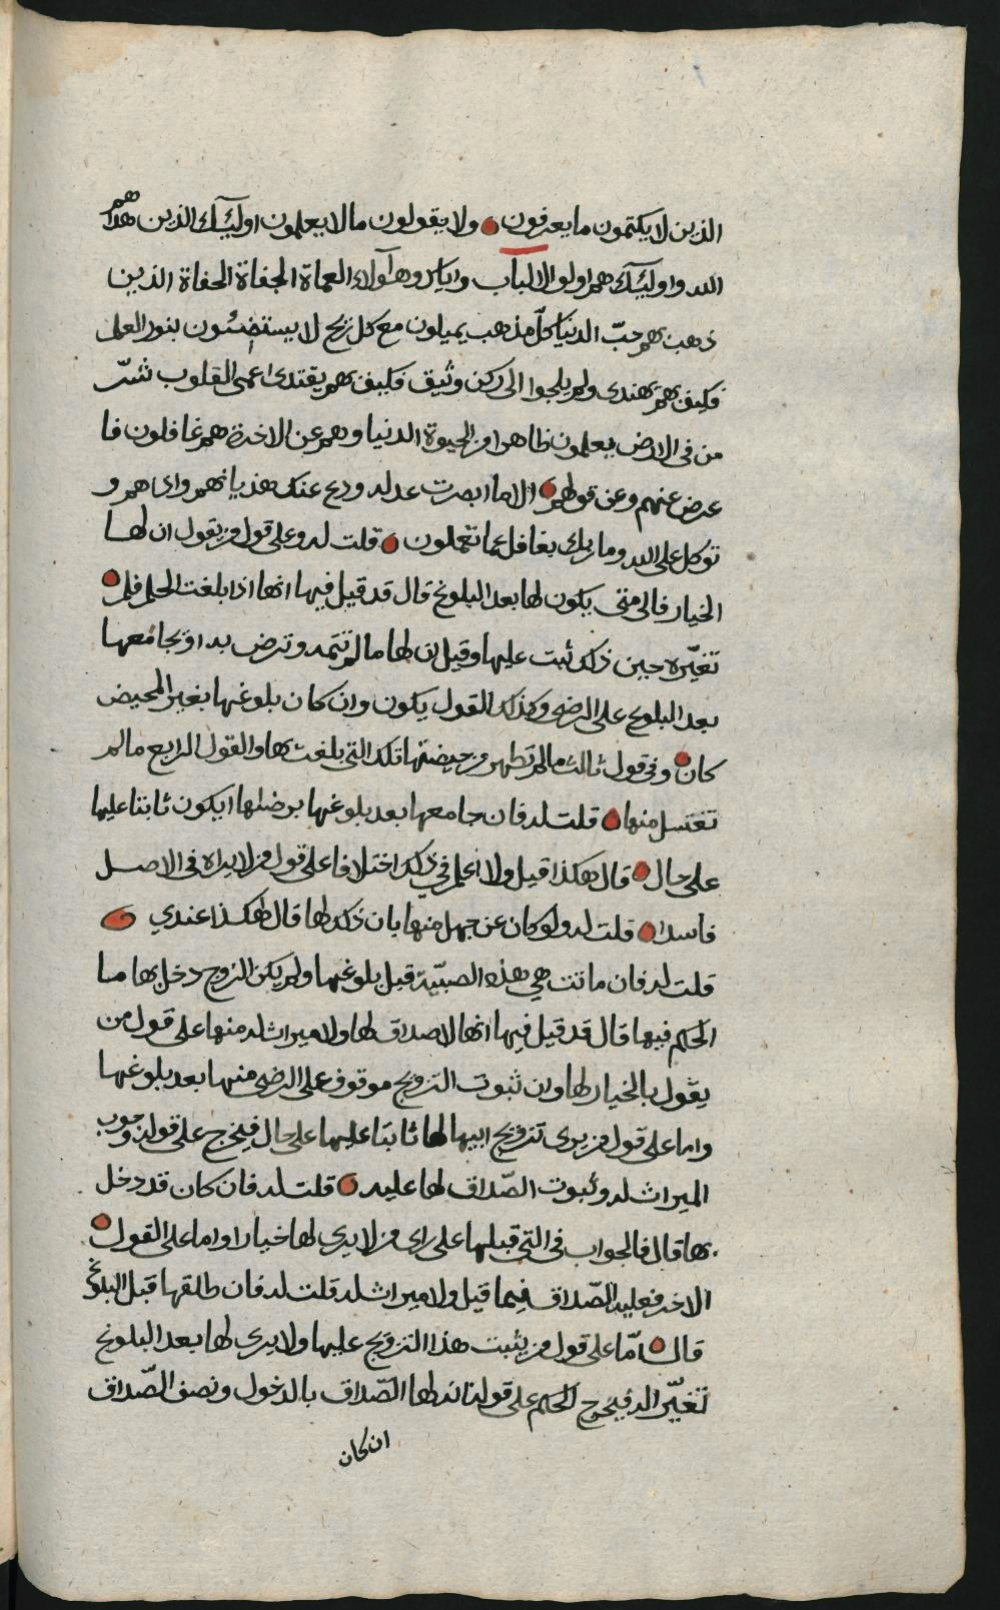 الذين لا يكتمون ما يعرفون ولا يقولون ما لا يعلمون اوليٓك الذين هداهم
الله واوليٓك هم اولو الالباب واياك وهٓولاء العماة الجفاة الحفاة الذين
ذهب بهم حبّ الدنيا كلّ مذهب يميلون مع كل ريح لا يستضيئون بنور العلم
فكيف بهم يهتدى ولم يلجوا الى ركن وثيق فكيف بهم يقتدى اعمى القلوب شرّ
من فى الارض يعلمون ظاهرا من الحيوة الدنيا وهم عن الاخرة هم غافلون فا
عرض عنهم وعن قولهم الا ما ابصرت عدله ودع عنك هذيانهم واى هم و
توكل على الله وما ربك بغافل عما تعملون قلت له وعلى قول من يقول ان لها
الخيار فالى متى يكون لها بعد البلوغ قال قد قيل فيها انها اذا بلغت الحلم فلم
تغيّره حين ذلك ثبت عليها وقيل ان لها ما لم تتمه وترض به او يجامعها
بعد البلوغ على الرضى وكذلك القول يكون وان كان بلوغها بغير المحيض
كان وفى قول ثالث ما لم تطهر من حيضتها تلك التى بلغت بها والقول الرابع ما لم
تغتسل منها قلت له فان جامعها بعد بلوغها برضاها ايكون ثابتا عليها
على حال قال هكذا قيل ولا اعلم فى ذلك اختلافا على قول من لا يراه فى الاصل
فاسدا قلت له ولو كان عن جهل منها بان ذلك لها قال هكذا عندي
قلت له فان ماتت هي هذه الصبيّة قبل بلوغها ولم يكن الزوج دخل بها ما
الحكم فيها قال قد قيل فيها انها لا صداق لها ولا ميراث له منها على قول من
يقول بالخيار لها وان ثبوت التزويج موقوف على الرضى منها بعد بلوغها
واما على قول من يرى تزويج ابيها لها ثابتا عليها على حال فيخرج على قوله وجوب
الميراث له وثبوت الصّداق لها عليه قلت له فان كان قد دخل
بها قال فالجواب فى التى قبلها على راى من لا يرى لها خيارا واما على القول
الاخر فعليه الصّداق فيما قيل ولا ميراث له قلت له فان طلقها قبل البلوغ
قال امّا على قول من يثبت هذا التزويج عليها ولا يرى لها بعد البلوغ
تغيّرا له فيخرج الحكم على قوله انه لها الصّداق بالدخول ونصف الصّداق
ان كان